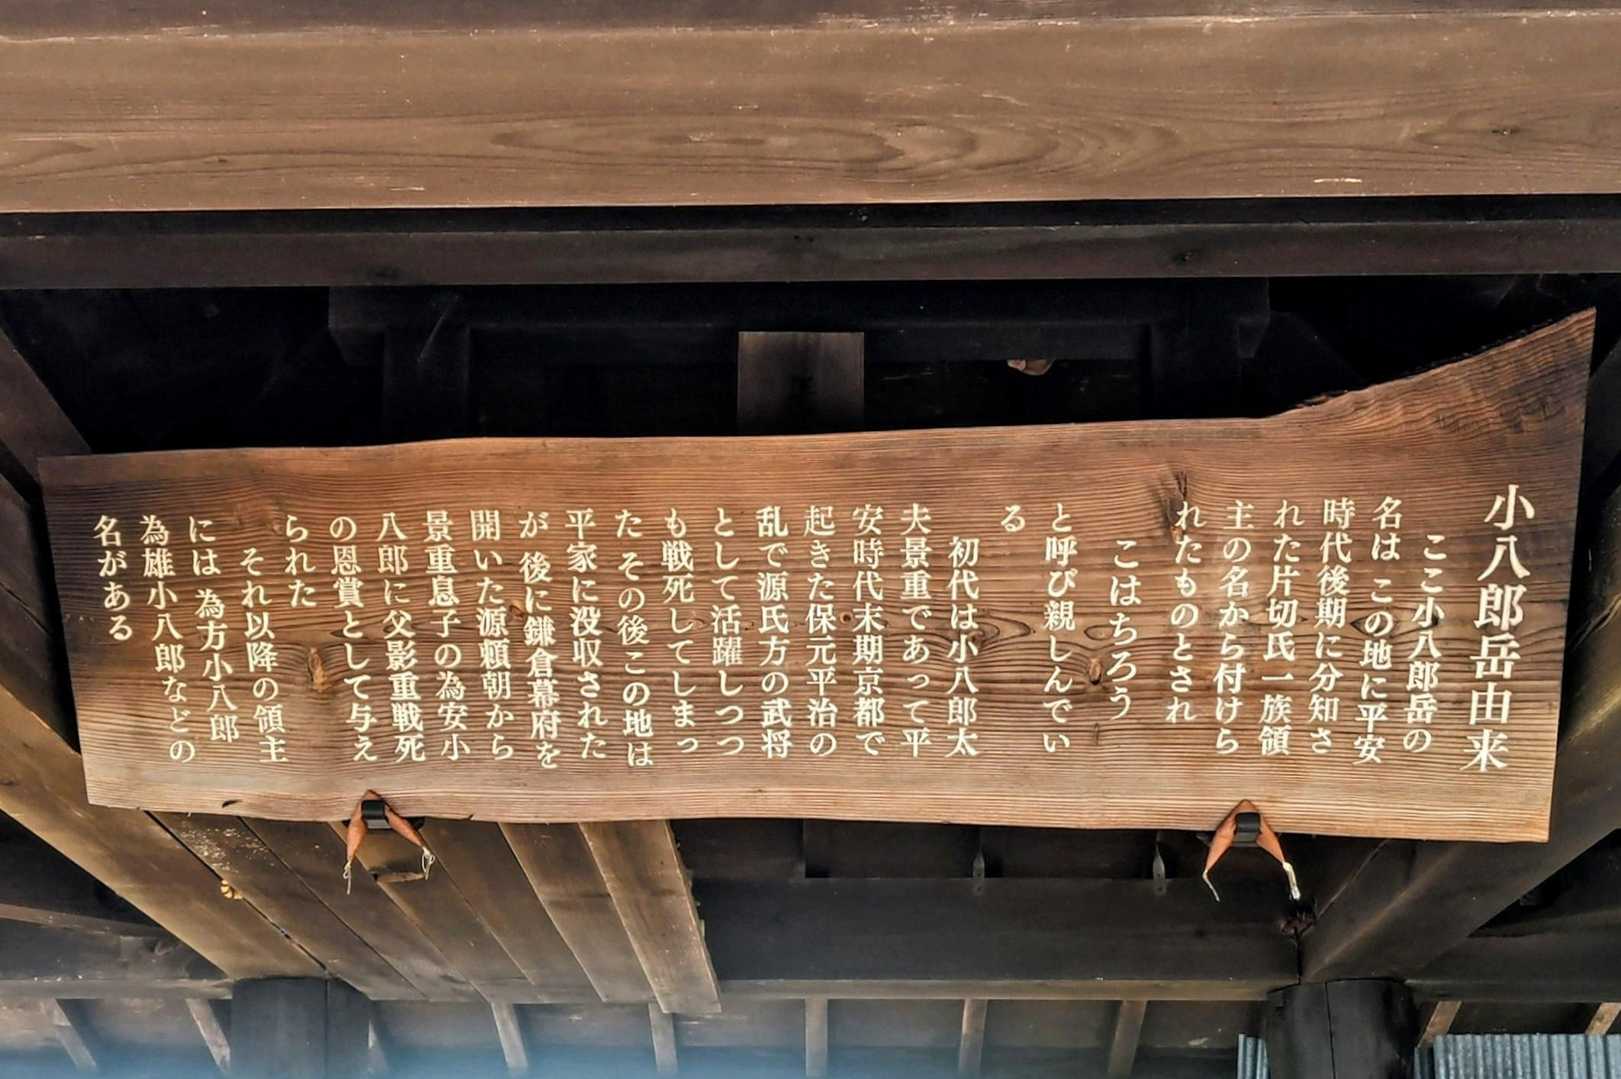 小八郎岳由来
ここ小八郎岳の
名は この地に平安
時代後期に分知さ
れた片切氏一族領
主の名から付けら
れたものとされ
こはちろう
と呼び親しんでい
る
初代は小八郎太
夫景重であって平
安時代末期京都で
起きた保元平治の
乱で源氏方の武将
として活躍しつつ
も戦死してしまっ
た その後この地は
平家に没収された
が 後に鎌倉幕府を
開いた源頼朝から
景重息子の為安小
八郎に父影重戦死
の恩賞として与え
られた
それ以降の領主
には 為方小八郎
為雄小八郎などの
名がある